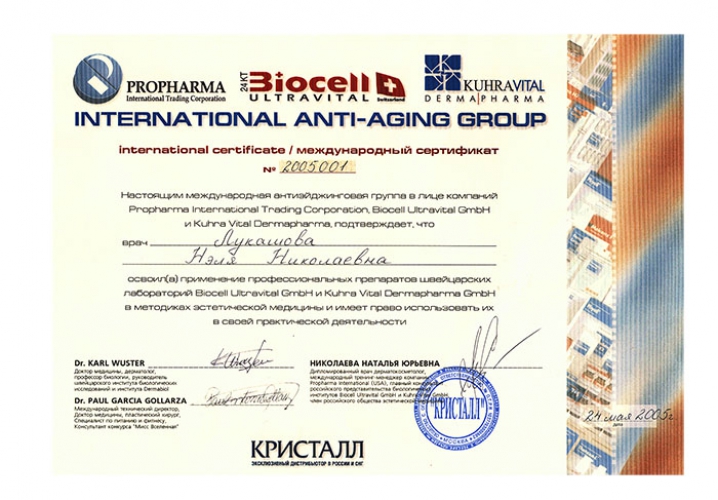 PROPHARMA
International Trading Corporation
24 KT Biocell
ULTRAVITAL Switzerland
KUHRAVITAL
DERMAPHARMA
INTERNATIONAL ANTI-AGING GROUP
international certificate / международный сертификат
№ 2005001
Настоящим международная антиэйджинговая группа в лице компаний
Propharma International Trading Corporation, Biocell Ultravital GmbH
и Kuhra Vital Dermapharma, подтверждает, что
врач Лукашова
Нэля Николаевна
освоил(а) применение профессиональных препаратов швейцарских
лабораторий Biocell Ultravital GmbH и Kuhra Vital Dermapharma GmbH
в методиках эстетической медицины и имеет право использовать их
в своей практической деятельности
Dr. KARL WUSTER
Доктор медицины, дерматолог,
профессор биологии, руководитель
швейцарского института биологических
исследований и института Dermabiol
Dr. PAUL GARCIA GOLLARZA
Международный технический директор,
Доктор медицины, пластический хирург,
Специалист по питанию и фитнесу,
Консультант конкурса "Мисс Вселенная"
НИКОЛАЕВА НАТАЛЬЯ ЮРЬЕВНА
Дипломированный врач дерматокосметолог,
международный тренинг-менеджер компании
Propharma International (USA), главный
российского представительства биологических
институтов Biocell Ultravital GmbH и Kuhra Vital GmbH
член российского общества эстетической
"КРИСТАЛЛ"
МОСКВА
24 мая 2005г.
дата
КРИСТАЛЛ
ЭКСКЛЮЗИВНЫЙ ДИСТРИБЬЮТОР В РОССИИ И СНГ